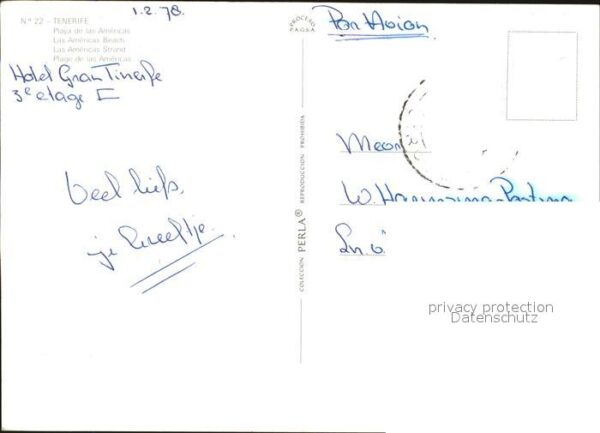 1.2.78.
Nº 22 - TENERIFE
Playa de las Américas
Las Américas Beach
Las Américas Strand
Plage de las Américas
Hotel Gran Tinerfe
3e etage
Veel liefs,
je
PROCESO
FAGSA
COLECCION PERLA® REPRODUCCION PROHIBIDA
Par Avion
W.
privacy protection
Datenschutz